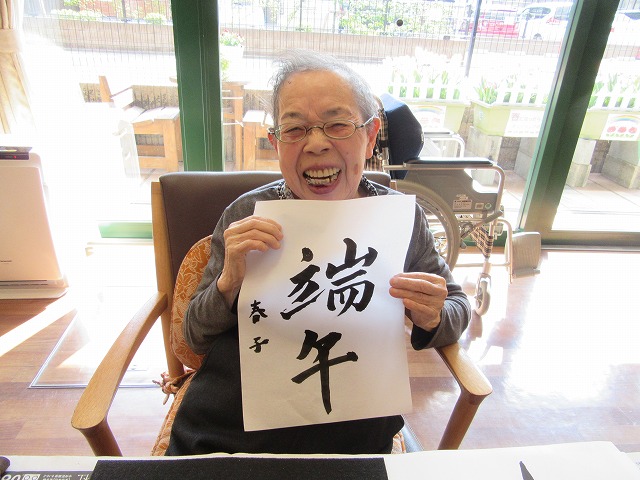 端午
春子